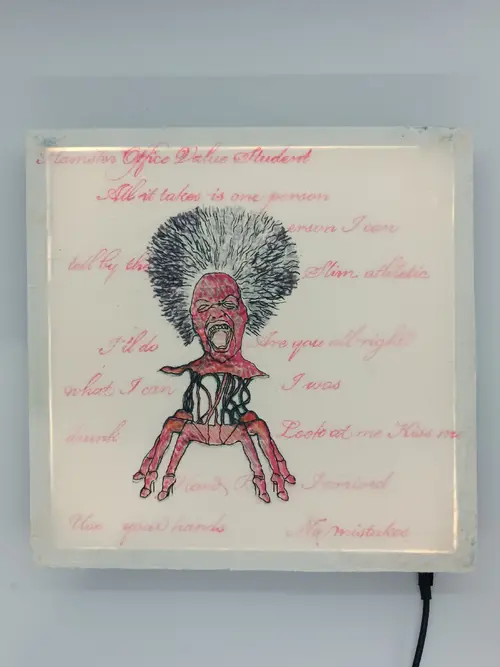 Office Value Student
All it takes is one person
erson I can
tell by the Slim athletic
I'll do Are you allbright
what I can I was
drunk Look at me Kiss me
Use your hands No mistakes